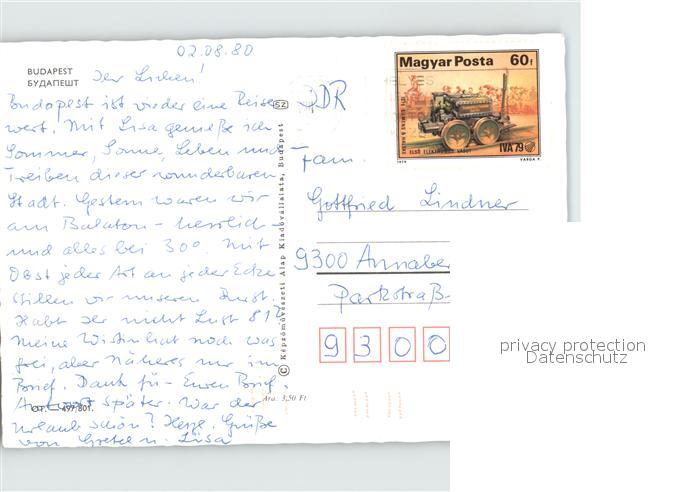 02.08.80
BUDAPEST
БУДАПЕШТ
Ihr Lieben!
Budapest ist wieder eine Reise
wert. Mit Lisa genieße ich
Sommer, Sonne, Leben und
Treiben dieser wunderbaren
Stadt. Gestern waren wir
am Balaton – herrlich –
und alles bei 30°. Mit
Obst jeder Art an jeder Ecke
stillen wir unseren Durst.
Habt Ihr nicht Lust 81?
Meine Wirtin hat noch was
frei, aber Näheres nur im
Brief. Dank für Euren Brief.
Antwort später. War der
Urlaub schön? Herzl. Grüße
von Gretel u. Lisa
497/801.
SZ
© Képzőművészeti Alap Kiadóvállalata, Budapest
Ára: 3,50 Ft
Magyar Posta 60f
ELSŐ ELEKTROMOS VASÚT
IVA 79
1979
VARGA P.
DDR
Fam.
Gottfried Lindner
9300 Annaber
Parkstraß
9 3 0 0
privacy protection
Datenschutz